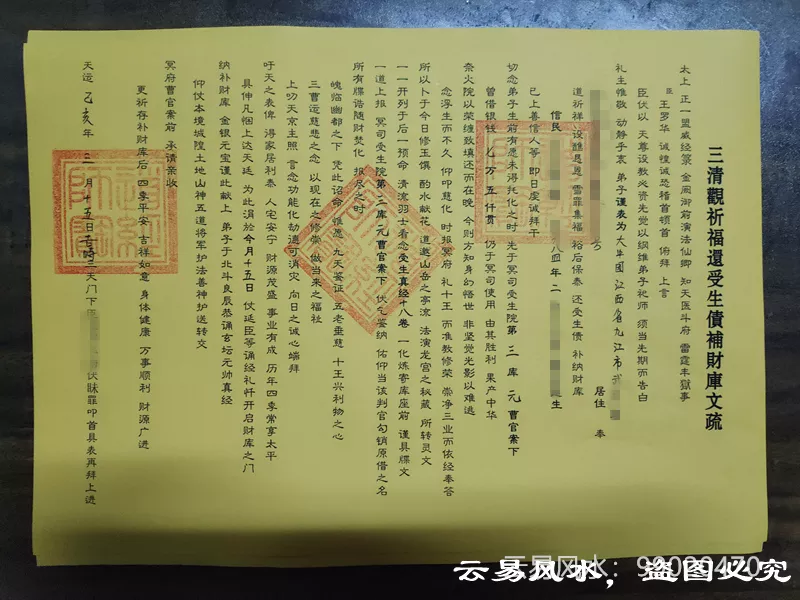 三清觀祈福還受生債補財庫文疏
太上 正一盟威经箓 金阙御前演法仙卿 知天医斗府 雷霆丰獄事
臣 王罗华 诚惶诚恐稽首顿首 俯拜 上言
臣伏以 天尊设教必资先觉以纲维弟子祀师 须当先期而告白
礼主惟敬 动静于衷 弟子谨表为大中國江西省九江市
居住 奉
道祈祥 设醮 恩 雪罪集福 裕后保泰 还受生债 补纳财库
信民 八四年二 生
已上善信人等 即日虔诚拜干
切念弟子生前有愿未得托化之时 先于冥司受生院第三库元曹官案下
曾借银钱九万五仟贯 仍于冥司使用 由其胜利 果产中华
奈火院以荣缠致填还而在晚 今则方知身幻悟世 非坚觉光影以难逃
念浮生而不久 仰叩慈化 时报冥府 礼十王 而准教修荣 崇净三业而依经奉答
所以卜于今日修玉馔 酌水献花 道遨山岳之亭流 法演龙宫之秘藏 所转灵文
一一开列于后一预命 清流羽士看念受生真经十八卷 一化炼寄库座前 谨具牒文
一道上报 冥司受生院第三库元曹官案下 伏乞鉴纳 佑仰当该判官勾销原借之名
所有牒诰随财焚化 报尽之时
魄临幽都之下 凭此诏命 雅愿 九天鉴证 五老垂慈 十王兴利物之心
三曹运慈悲之念 以现在之修崇 做当来之福社
上叨天京主照 言念功能化劫逋可消灾 向日之诚心端拜
吁天之表俾 得家居利泰 人宅安宁 财源茂盛 事业有成 历年四季常享太平
具伸凡悃上达天廷 为此涓於今月十五日 仗延臣等诵经礼忏开启财库之门
纳补财库 金银元宝谨此献上 弟子于北斗良辰恭诵玄坛元帅真经
仰仗本境城隍土地山神五道将军护法善神护送转文
冥府曹官案前 承请亲收
更祈存补财库后 四季平安 吉祥如意 身体健康 万事顺利 财源广进
天运 乙亥年 二月十五日 三天门下臣 伏眛罪叩首具表再拜上进
云易风水：98090470
云易风水，盗图必究